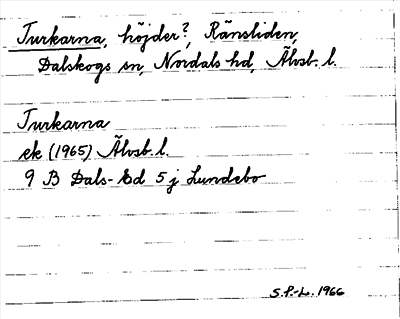 Turkarna, höjder?, Ränsliden,
Dalskogs sn, Nordals hd, Älvsb. l.
Turkarna
ek (1965) Älvsb. l.
9 B Dals-Ed 5 j Lundebo
S.P.-L. 1966